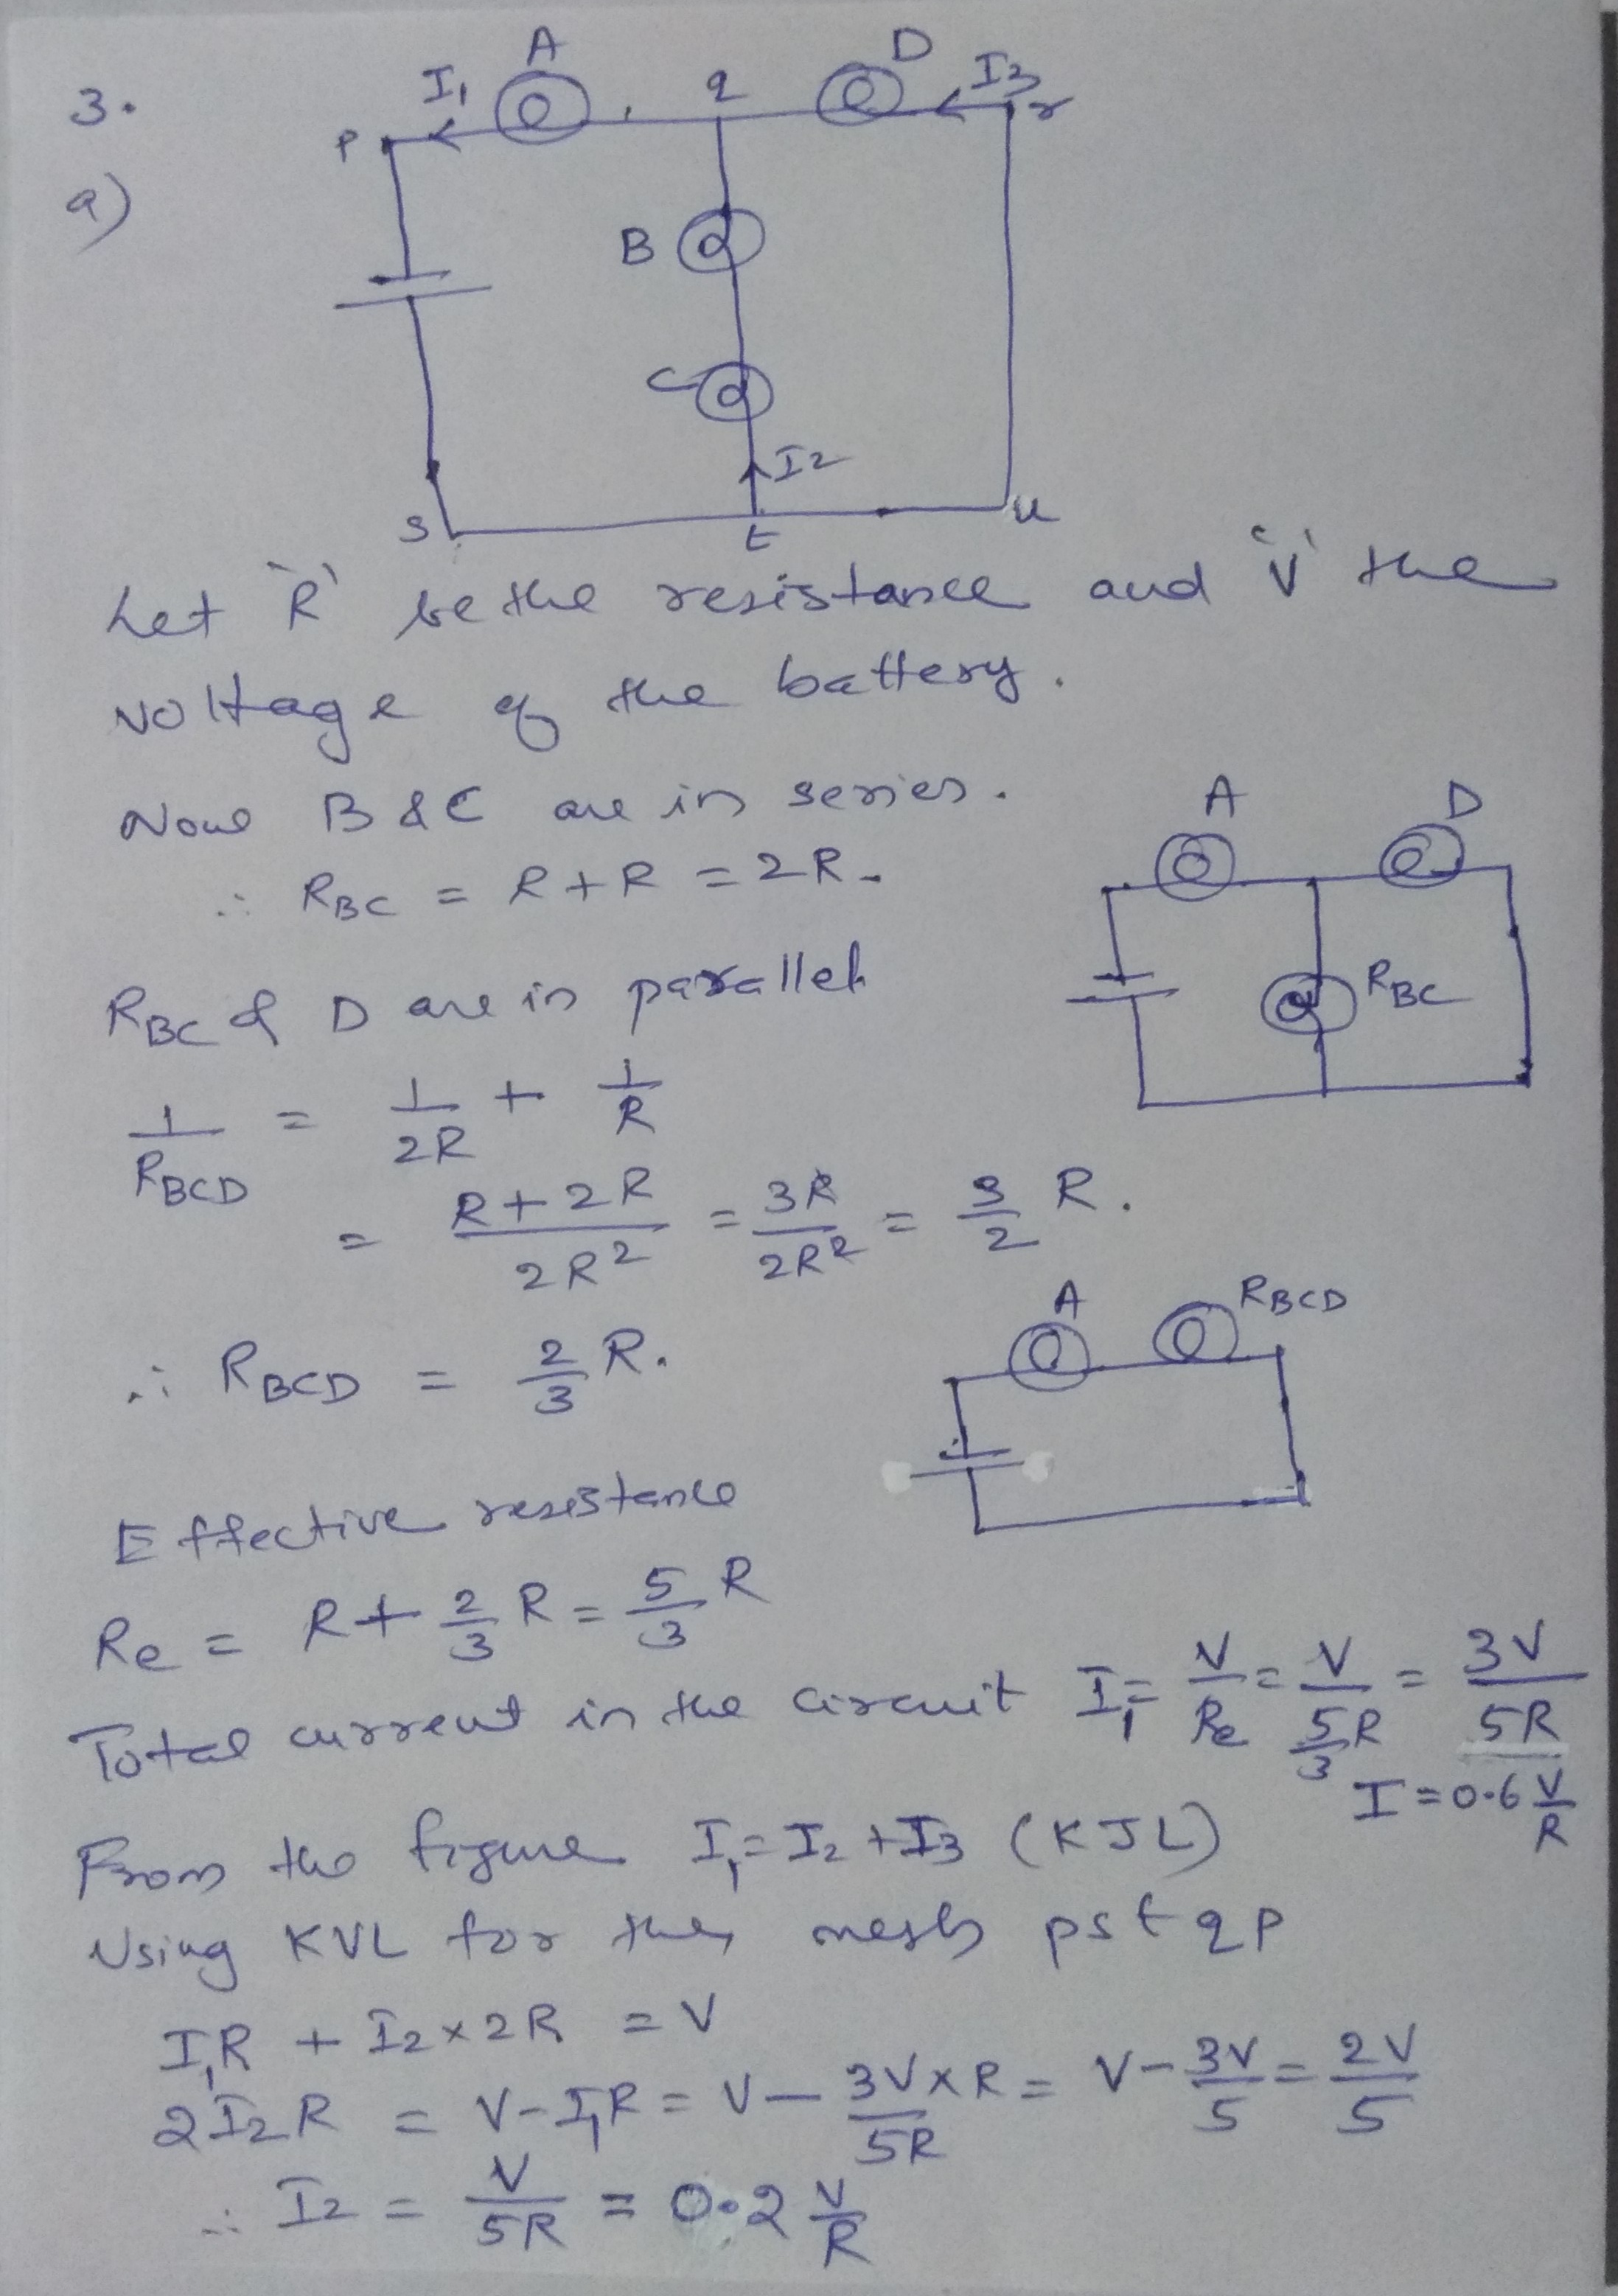 3.
a)
A
D
I₁
q
I₃
p
r
B
C
I₂
s
t
u
Let 'R' be the resistance and 'V' the
voltage of the battery.
Now B & C are in series.
∴ RBC = R + R = 2R.
A
D
RBC
RBC & D are in parallel
1/RBCD = 1/2R + 1/R
= (R + 2R)/2R² = 3R/2R² = 3/2 R.
∴ RBCD = 2/3 R.
A
RBCD
Effective resistance
Re = R + 2/3 R = 5/3 R
Total current in the circuit I₁ = V/Re = V/(5/3 R) = 3V/5R
I = 0.6 V/R
From the figure I₁ = I₂ + I₃ (KJL)
Using KVL for the mesh pstqp
I₁R + I₂ × 2R = V
2I₂R = V - I₁R = V - 3V/5R × R = V - 3V/5 = 2V/5
∴ I₂ = V/5R = 0.2 V/R